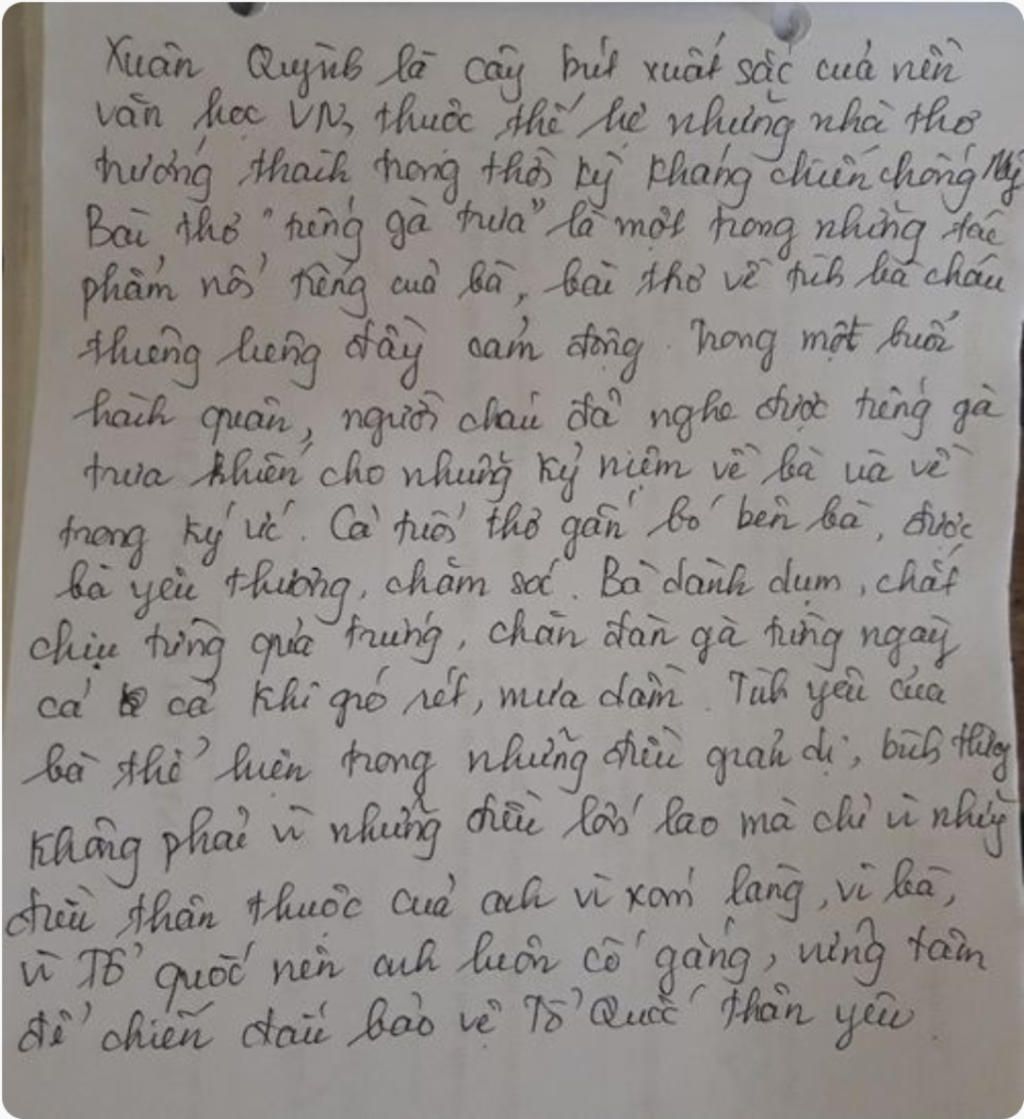 Xuân Quỳnh là cây bút xuất sắc của nền
văn học VN, thuộc thế hệ những nhà thơ
trưởng thành trong thời kỳ kháng chiến chống Mỹ
Bài thơ "tiếng gà trưa" là một trong những tác
phẩm nổi tiếng của bà, bài thơ về tình bà cháu
thiêng liêng đầy cảm động. Trong một buổi
hành quân, người cháu đã nghe được tiếng gà
trưa khiến cho những kỷ niệm về bà ùa về
trong ký ức. Cả tuổi thơ gắn bó bên bà, được
bà yêu thương, chăm sóc. Bà dành dụm, chắt
chiu từng quả trứng, chăn đàn gà từng ngày
cả cả khi gió rét, mưa dầm. Tình yêu của
bà thể hiện trong những điều giản dị, bình thường
không phải vì những điều lớn lao mà chỉ vì những
điều thân thuộc của anh vì xóm làng, vì bà,
vì Tổ quốc nên anh luôn cố gắng, vững tâm
để chiến đấu bảo vệ Tổ Quốc thân yêu.